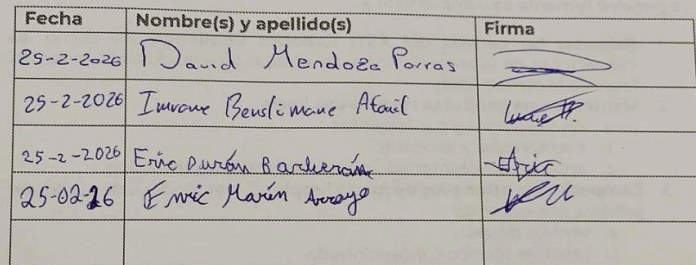 Fecha Nombre(s) y apellido(s) Firma
25-2-2026 David Mendoza Porras
25-2-2026 Imrane Benslimane Afail
25-2-2026 Eric Durán Barberán
25-02-26 Enric Marín Arroyo